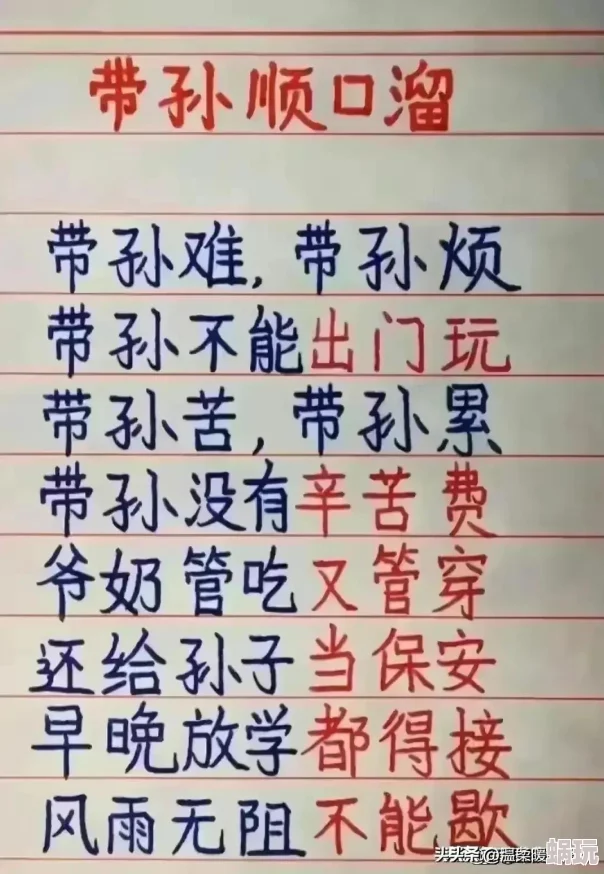 带孙顺口溜
带孙难,带孙烦
带孙不能出门玩
带孙苦,带孙累
带孙没有辛苦费
爷奶管吃又管穿
还给孙子当保安
早晚放学都得接
风雨无阻不能歇
头条 @温柔暖
蜗玩